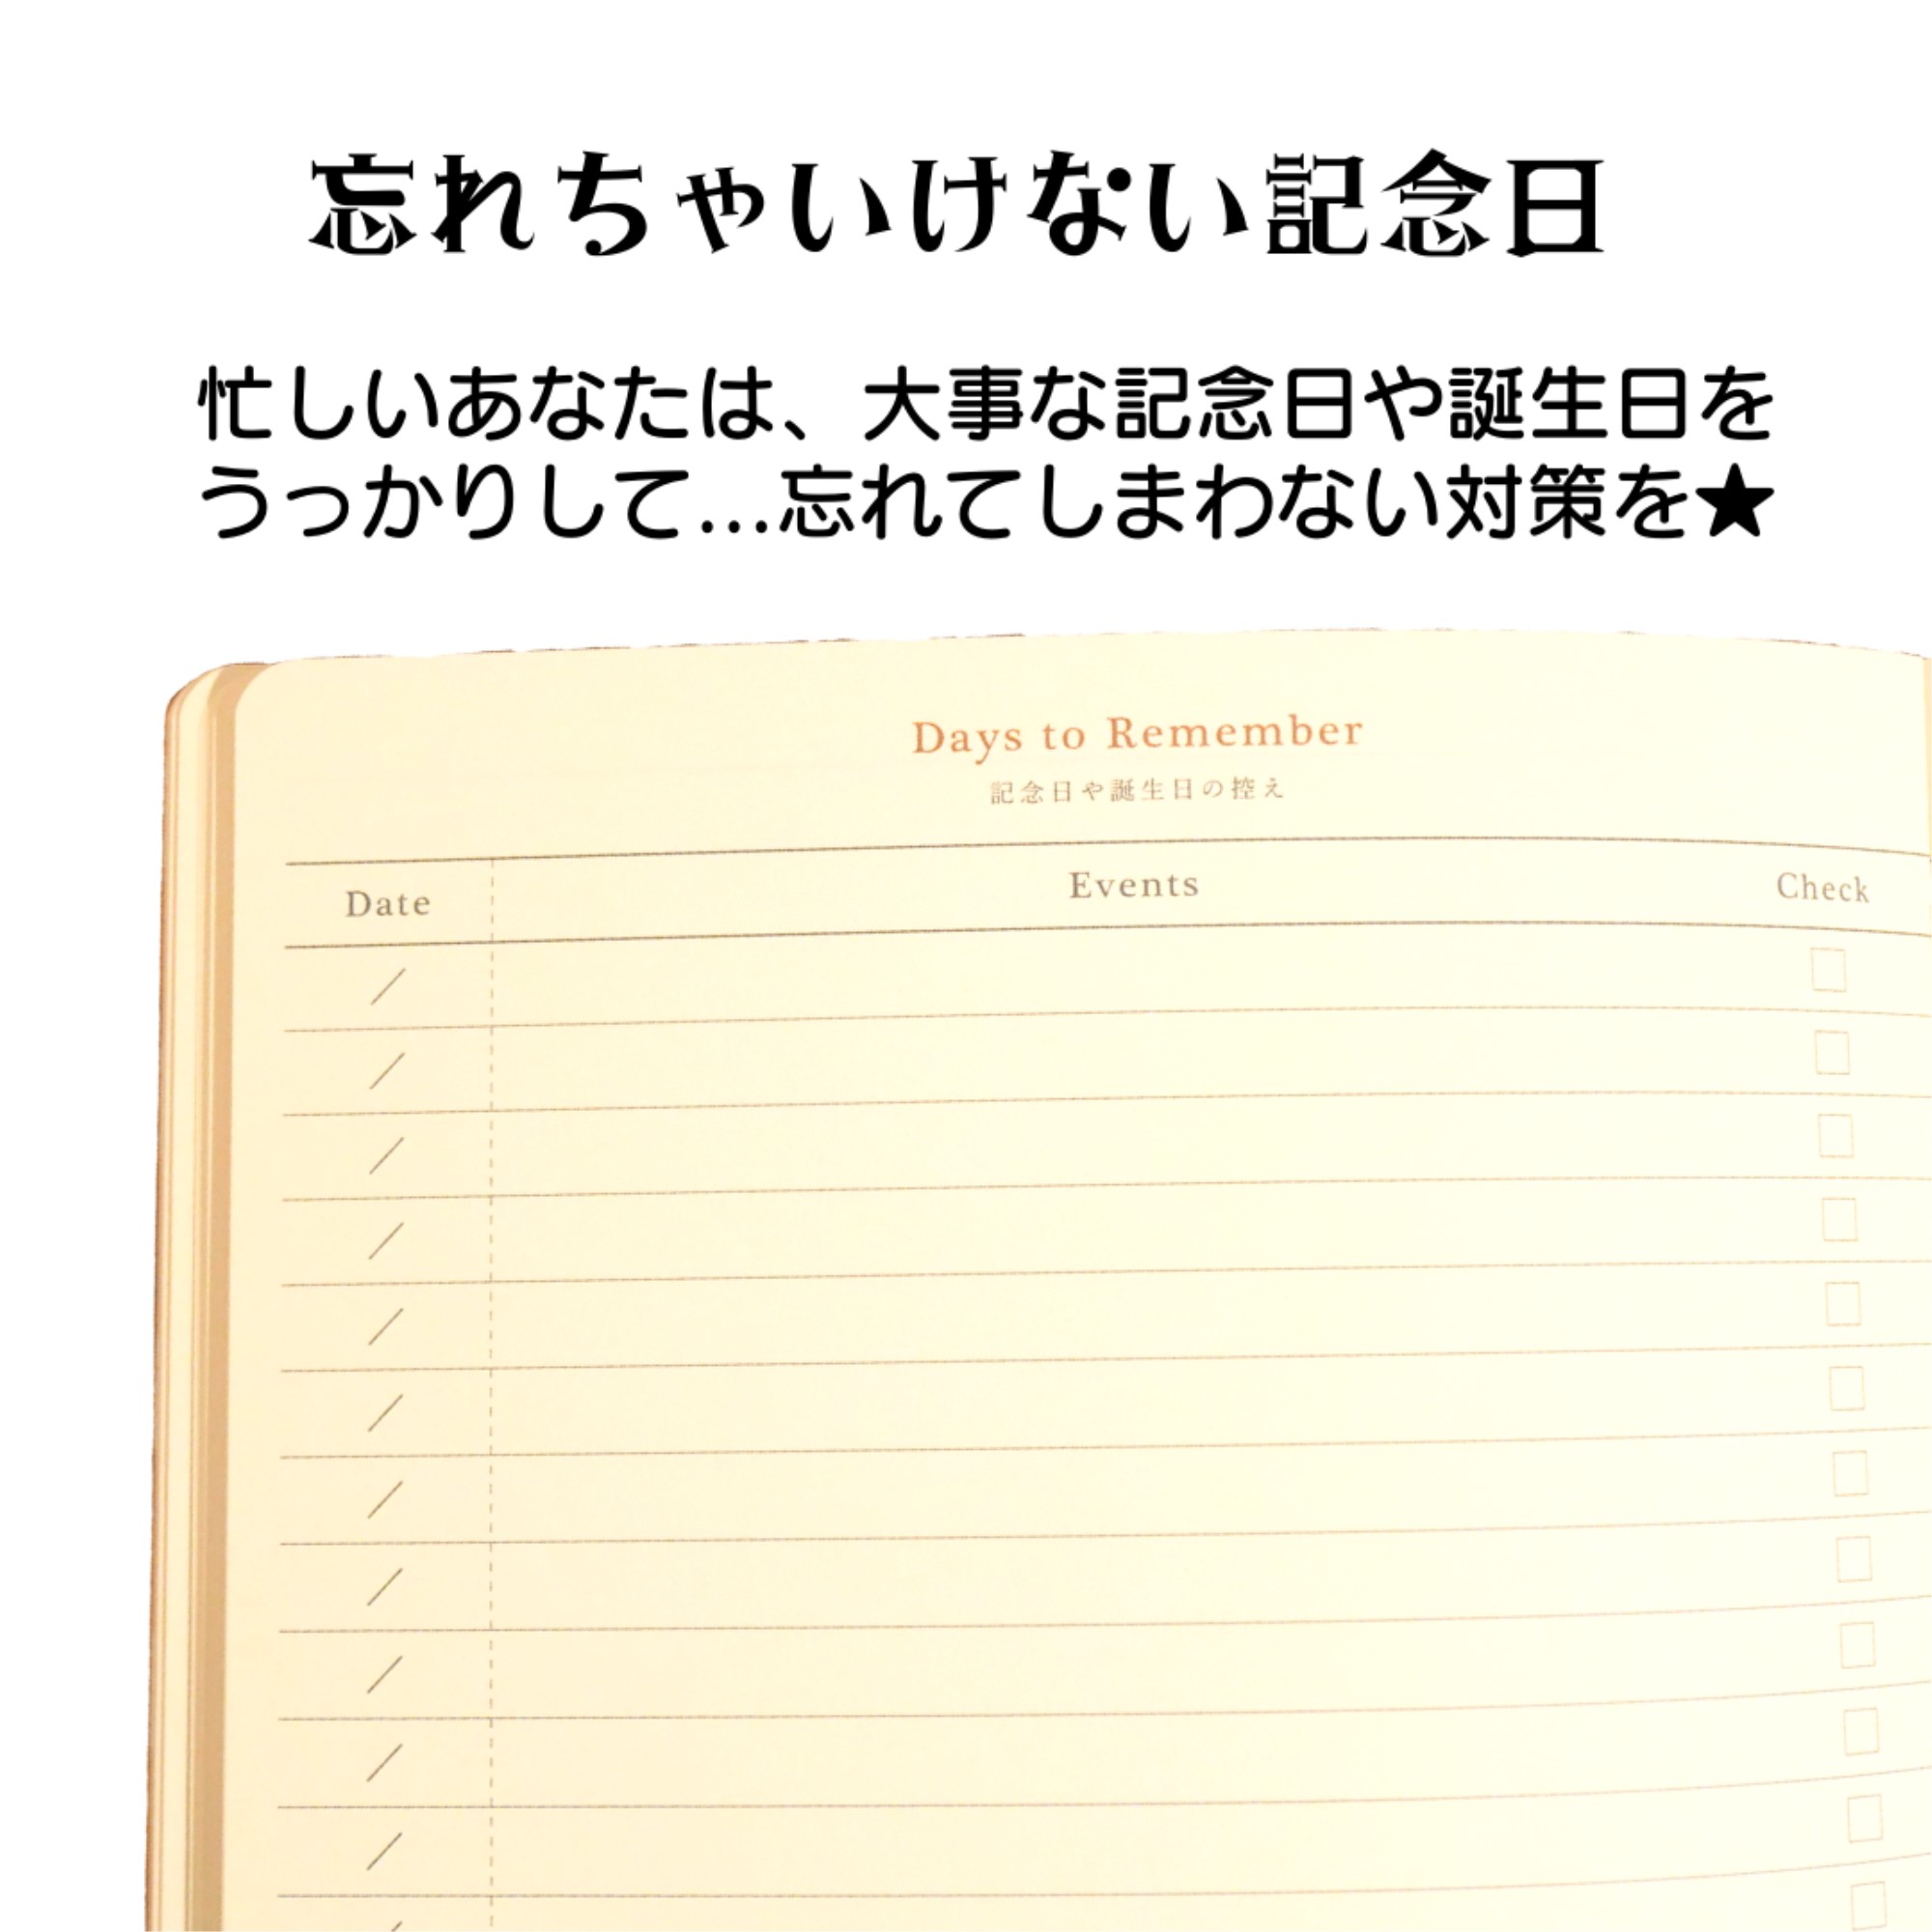 忘れちゃいけない記念日
忙しいあなたは、大事な記念日や誕生日を
うっかりして...忘れてしまわない対策を★
Days to Remember
記念日や誕生日の控え
Date Events Check
/
/
/
/
/
/
/
/
/
/
/
/